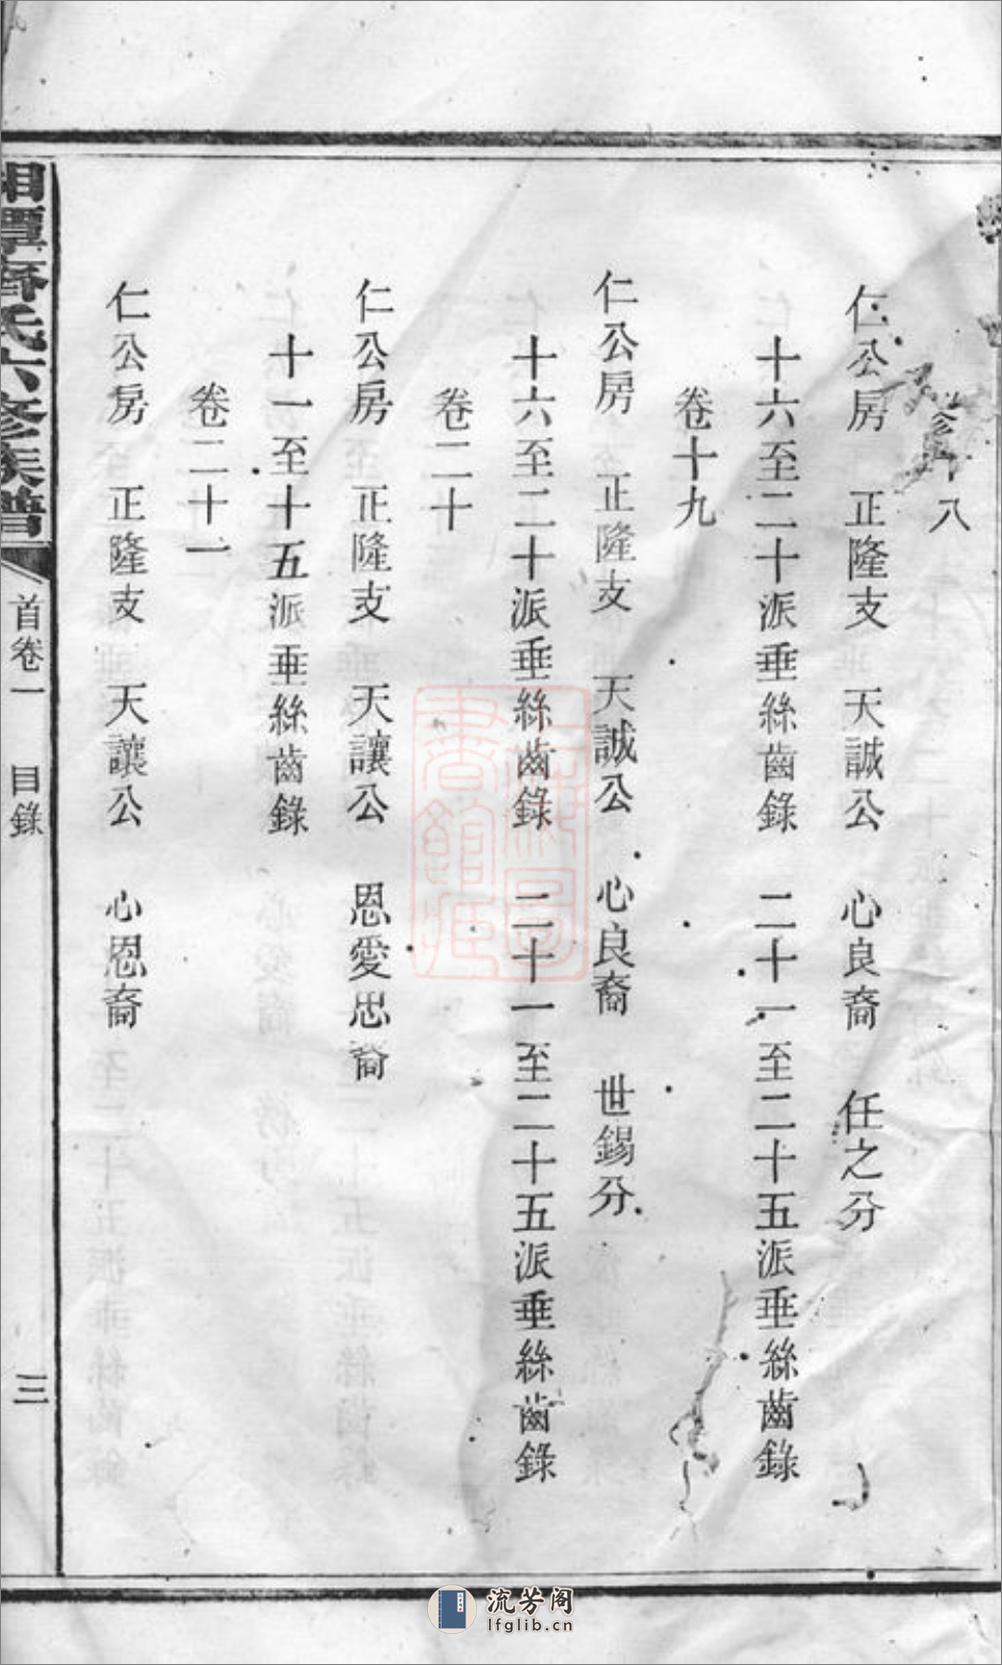 卷十八
仁公房 正隆支 天誠公 心良裔 任之分
十六至二十派垂絲齒錄 二十一至二十五派垂絲齒錄
卷十九
仁公房 正隆支 天誠公 心良裔 世錫分
十六至二十派垂絲齒錄 二十一至二十五派垂絲齒錄
卷二十
仁公房 正隆支 天讓公 恩愛思裔
十一至十五派垂絲齒錄
卷二十一
仁公房 正隆支 天讓公 心恩裔
湘潭齊氏六修族譜 首卷一 目錄 三
流芳阁
lfglib.cn